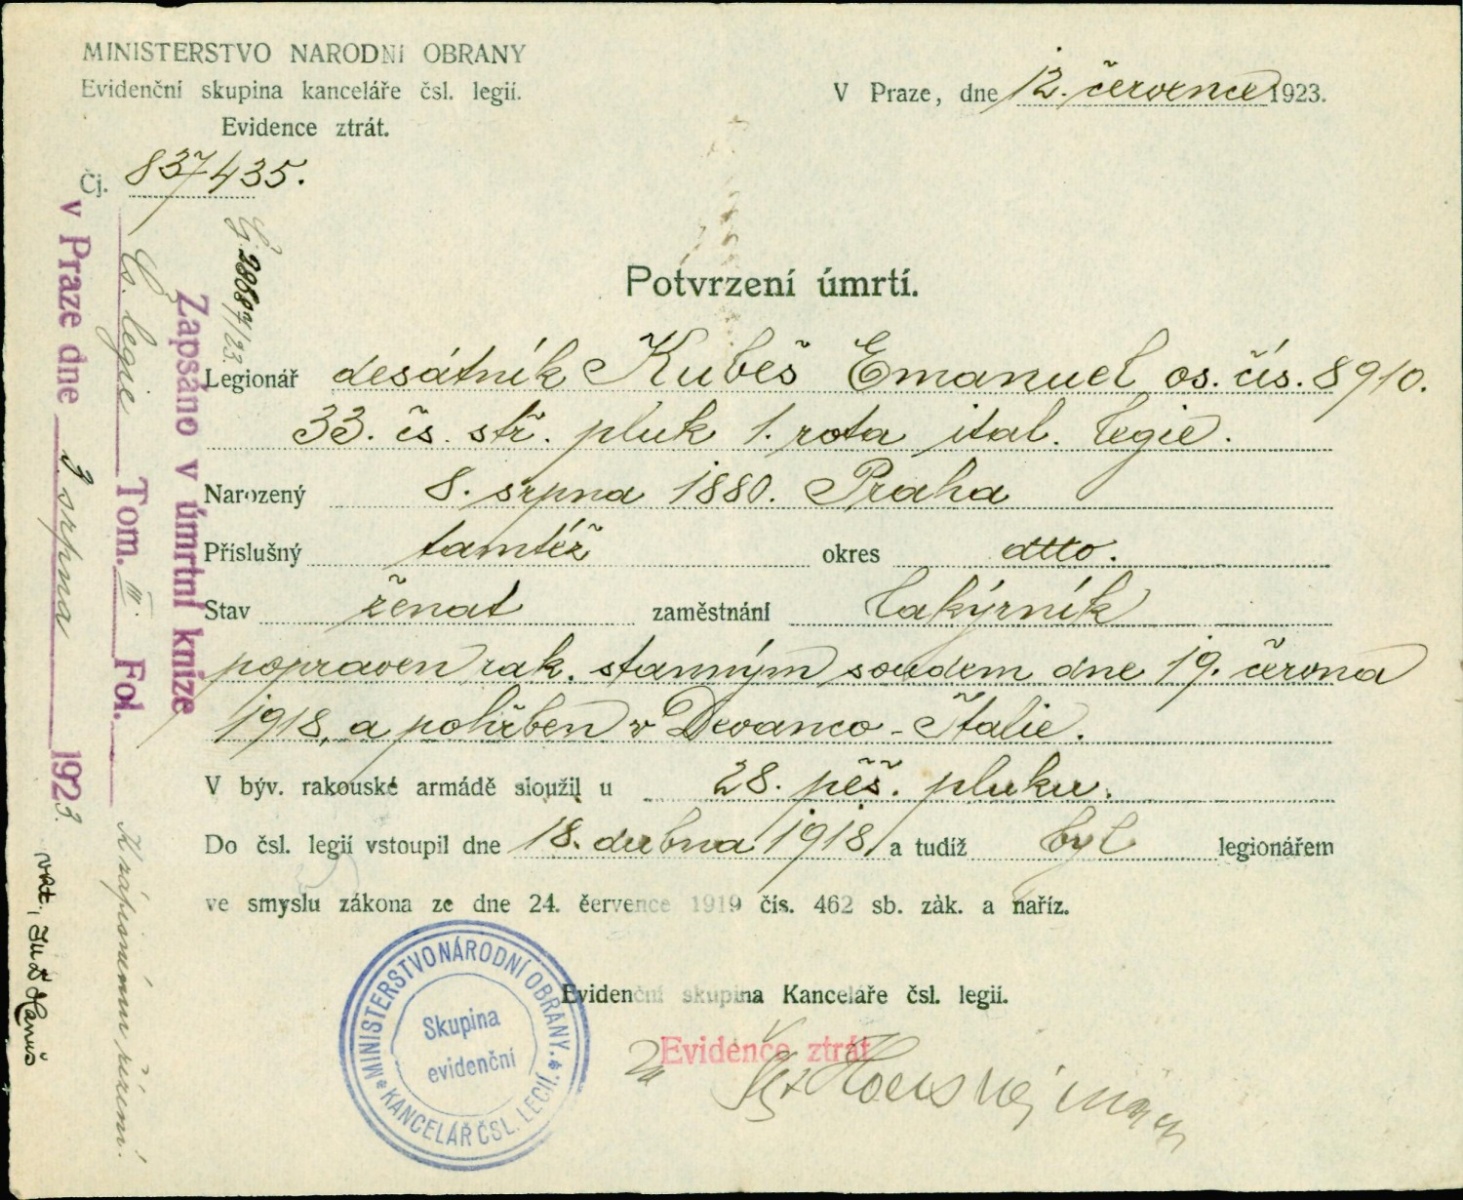 MINISTERSTVO NARODNÍ OBRANY
Evidenční skupina kanceláře čsl. legií.
Evidence ztrát.
V Praze, dne 12. července 1923.
Čj. 837435.
Potvrzení úmrtí.
Legionář desátník Kubeš Emanuel os. čís. 8910.
33. čs. stř. pluk 1. rota ital. legie.
Narozený 8. srpna 1880. Praha
Příslušný tamtéž okres dtto.
Stav ženat zaměstnání lakýrník
popraven rak. stanným soudem dne 19. června
1918, a pohřben v Devanco - Italie.
V býv. rakouské armádě sloužil u 28. pěš. pluku.
Do čsl. legií vstoupil dne 18. dubna 1918, a tudíž byl legionářem
ve smyslu zákona ze dne 24. července 1919 čís. 462 sb. zák. a naříz.
Evidenční skupina Kanceláře čsl. legií.
Evidence ztrát
MINISTERSTVO NÁRODNÍ OBRANY.
KANCELÁŘ ČSL. LEGIÍ.
Skupina
evidenční
Zapsáno v úmrtní knize
Čs. legie Tom. III. Fol.
v Praze dne 3 srpna 1923.
K zápisnímu řízení.